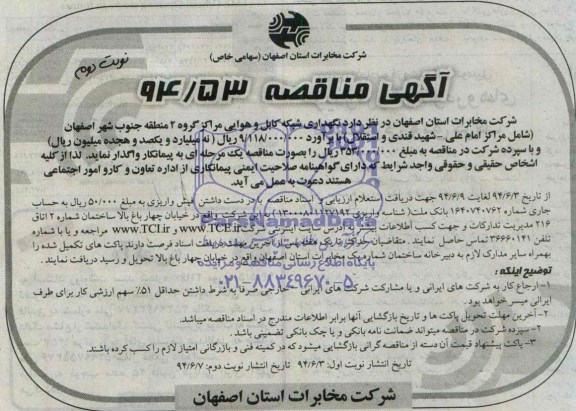 شرکت مخابرات استان اصفهان (سهامی خاص)
نوبت دوم
آگهی مناقصه ۹۴/۵۳
شرکت مخابرات استان اصفهان در نظر دارد نگهداری شبکه کابل و هوایی مراکز گروه ۲ منطقه جنوب شهر اصفهان
(شامل مراکز امام علی - شهید قندی و استقلال) با برآورد ۹/۱۱۸/۰۰۰/۰۰۰ ریال (نه میلیارد و یکصد و هجده میلیون ریال)
و با سپرده شرکت در مناقصه به مبلغ ۲۵۳/۰۰۰/۰۰۰ ریال را بصورت مناقصه یک مرحله ای به پیمانکار واگذار نماید. لذا از کلیه
اشخاص حقیقی و حقوقی واجد شرایط که دارای گواهینامه صلاحیت ایمنی پیمانکاری از اداره تعاون و کارو امور اجتماعی
هستند دعوت به عمل می آید.
از تاریخ ۹۴/۶/۳ لغایت ۹۴/۶/۹ جهت دریافت استعلام ارزیابی و اسناد مناقصه با در دست داشتن فیش واریزی به مبلغ ۵۰/۰۰۰ ریال به حساب
جاری شماره ۱۶۴۰۷۴۰۷۶۲ بانک ملت (شناسه واریزی) به نام شرکت واقع در خیابان چهار باغ بالا ساختمان شماره ۲ اتاق
۲۱۶ مدیریت تدارکات و جهت کسب اطلاعات به آدرس اینترنتی شرکت www.TCE.ir و www.TCI.ir مراجعه و یا با شماره
تلفن ۳۶۶۶۰۱۴۱ تماس حاصل نمایند. متقاضیان اسناد فرصت دارند پاکت های تکمیل شده را
بهمراه سایر مدارک لازم به دبیرخانه ساختمان شماره یک مخابرات استان اصفهان واقع در خیابان چهار باغ بالا تحویل و رسید دریافت نمایند.
پایگاه اطلاع رسانی مناقصه و مزایده
۰۲۱-۸۸۳۴۹۶۷۰-۵
توضیح اینکه :
۱-ارجاع کار به شرکت های ایرانی و یا مشارکت شرکت های ایرانی - خارجی صرفا به شرط داشتن حداقل ۵۱٪ سهم ارزشی کار برای طرف
ایرانی میسر خواهد بود.
۲-آخرین مهلت تحویل پاکت ها و تاریخ بازگشایی آنها برابر اطلاعات مندرج در اسناد مناقصه میباشد.
۲-سپرده شرکت در مناقصه میتواند ضمانت نامه بانکی و یا چک بانکی تضمینی باشد.
۳-پاکت پیشنهاد قیمت آن دسته از مناقصه گرانی بازگشایی میشود که در کمیته فنی و بازرگانی امتیاز لازم را کسب کرده باشند.
تاریخ انتشار نوبت اول: ۹۴/۶/۳ تاریخ انتشار نوبت دوم: ۹۴/۶/۷
شرکت مخابرات استان اصفهان